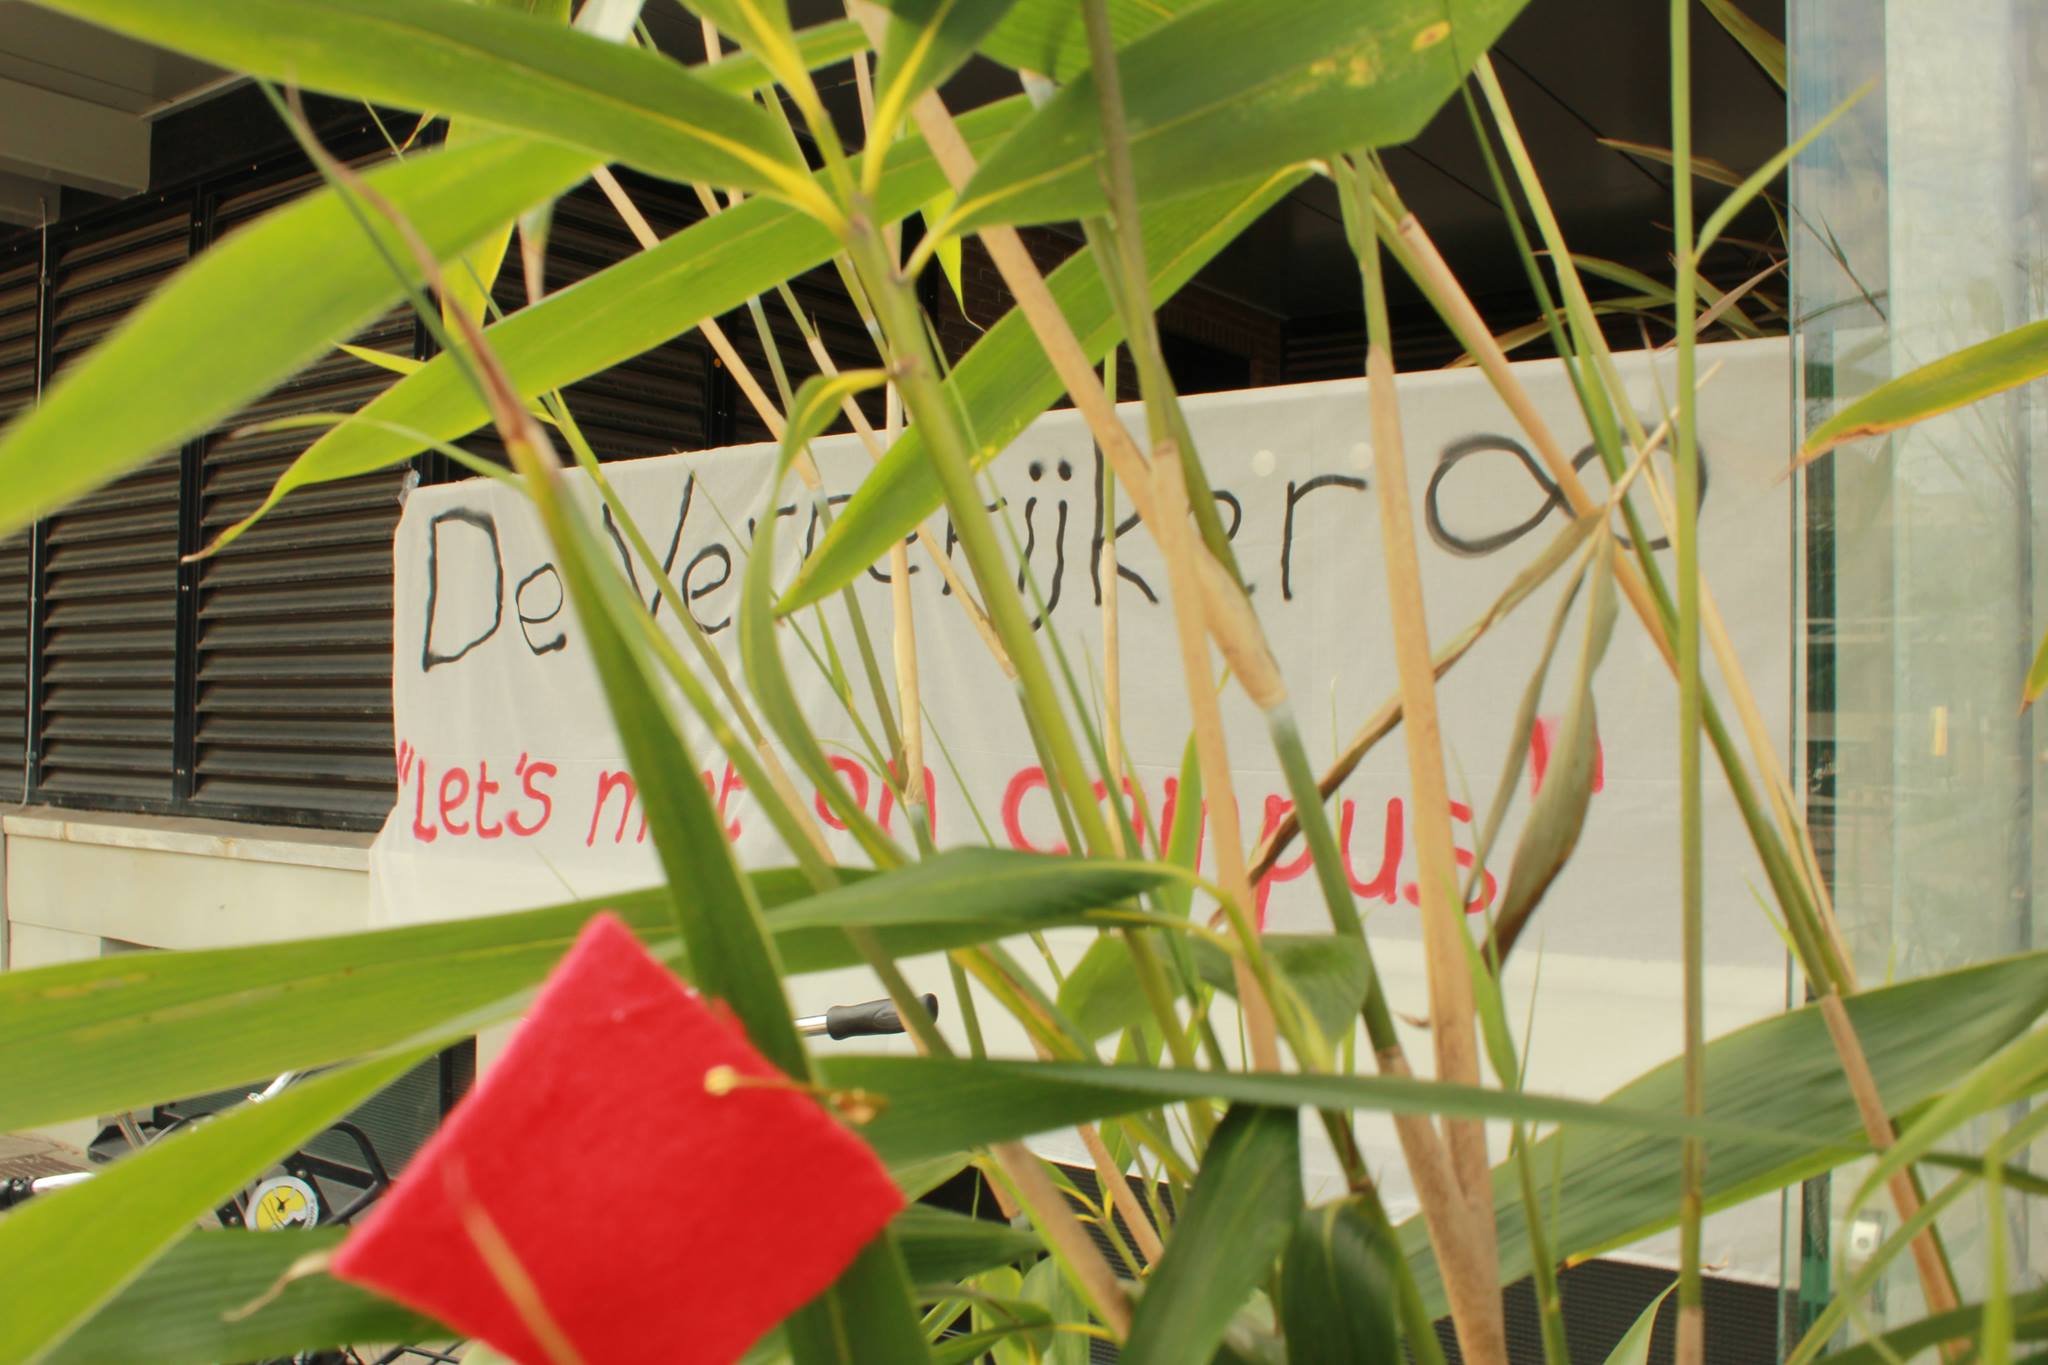 De Verrekijker ∞
"Let's meet on campus"